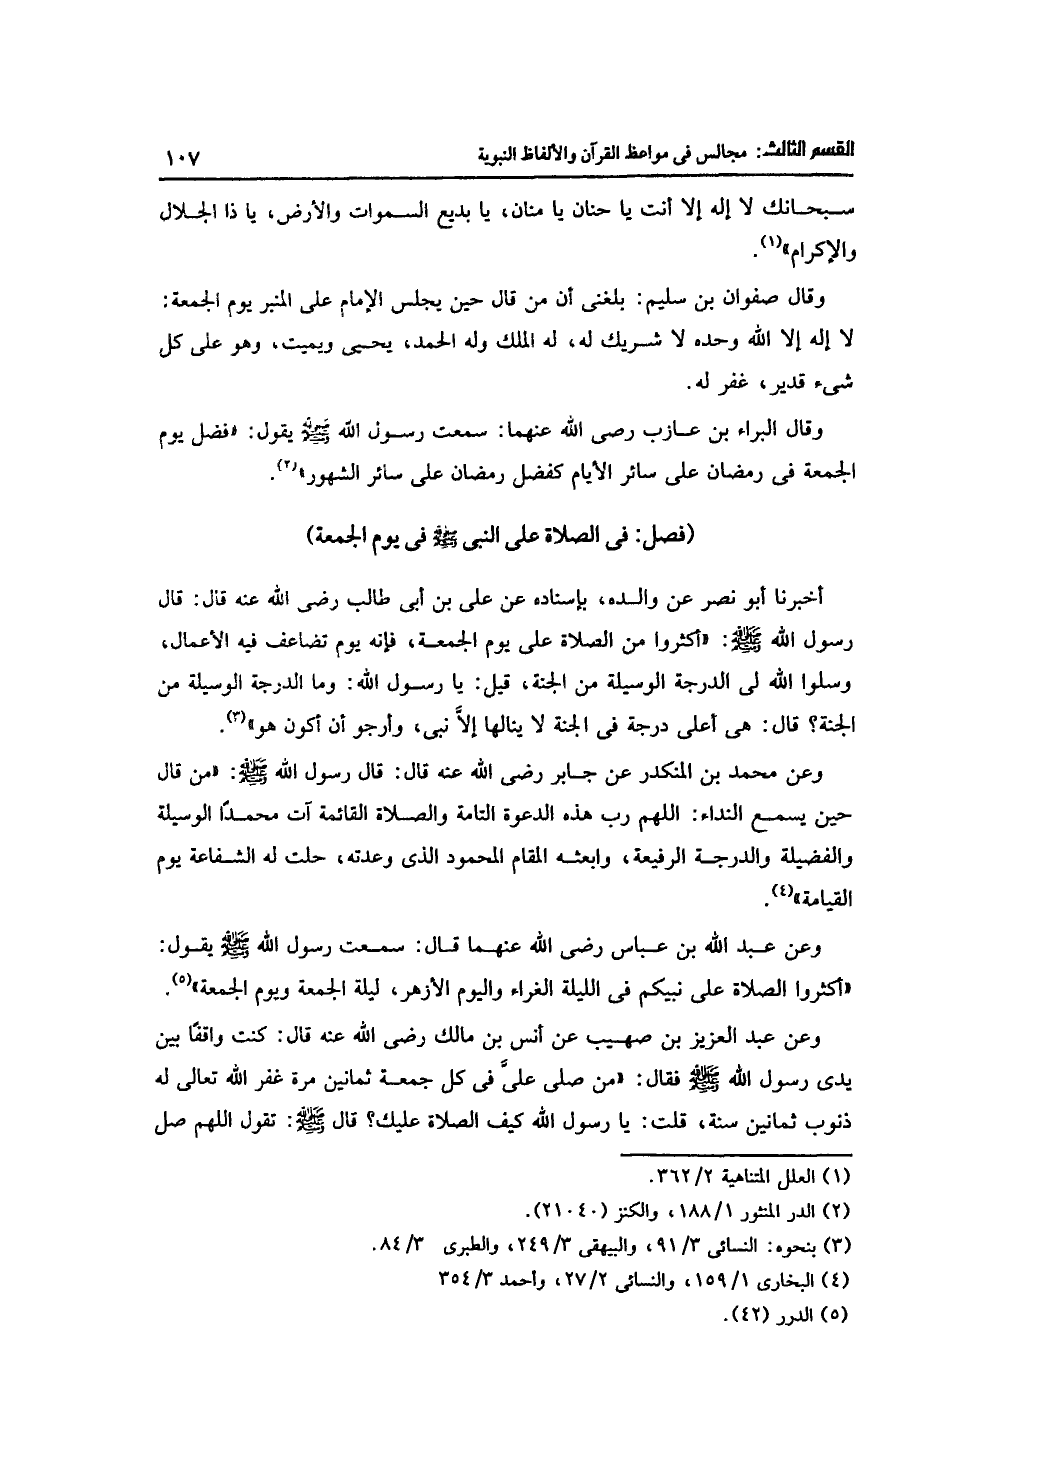 القسم الثالث: مجالس فى مواعظ القرآن والألفاظ النبوية ١٠٧
سبحانك لا إله إلا أنت يا حنان يا منان، يا بديع السموات والأرض، يا ذا الجلال
والإكرام»(١).
وقال صفوان بن سليم: بلغنى أن من قال حين يجلس الإمام على المنبر يوم الجمعة:
لا إله إلا الله وحده لا شريك له، له الملك وله الحمد، يحيى ويميت، وهو على كل
شىء قدير، غفر له.
وقال البراء بن عازب رصى الله عنهما: سمعت رسول الله ﷺ يقول: «فضل يوم
الجمعة فى رمضان على سائر الأيام كفضل رمضان على سائر الشهور»(٢).
(فصل: فى الصلاة على النبى ﷺ فى يوم الجمعة)
أخبرنا أبو نصر عن والده، بإسناده عن على بن أبى طالب رضى الله عنه قال: قال
رسول الله ﷺ: «أكثروا من الصلاة على يوم الجمعة، فإنه يوم تضاعف فيه الأعمال،
وسلوا الله لى الدرجة الوسيلة من الجنة، قيل: يا رسول الله: وما الدرجة الوسيلة من
الجنة؟ قال: هى أعلى درجة فى الجنة لا ينالها إلاَّ نبى، وأرجو أن أكون هو»(٣).
وعن محمد بن المنكدر عن جابر رضى الله عنه قال: قال رسول الله ﷺ: «من قال
حين يسمع النداء: اللهم رب هذه الدعوة التامة والصلاة القائمة آت محمدًا الوسيلة
والفضيلة والدرجة الرفيعة، وابعثه المقام المحمود الذى وعدته، حلت له الشفاعة يوم
القيامة»(٤).
وعن عبد الله بن عباس رضى الله عنهما قال: سمعت رسول الله ﷺ يقول:
«أكثروا الصلاة على نبيكم فى الليلة الغراء واليوم الأزهر، ليلة الجمعة ويوم الجمعة»(٥).
وعن عبد العزيز بن صهيب عن أنس بن مالك رضى الله عنه قال: كنت واقفًا بين
يدى رسول الله ﷺ فقال: «من صلى علىَّ فى كل جمعة ثمانين مرة غفر الله تعالى له
ذنوب ثمانين سنة، قلت: يا رسول الله كيف الصلاة عليك؟ قال ﷺ: تقول اللهم صل
(١) العلل المتناهية ٣٦٢/٢.
(٢) الدر المنثور ١٨٨/١، والكنز (٢١٠٤٠).
(٣) بنحوه: النسائى ٩١/٣، والبيهقى ٢٤٩/٣، والطبرى ٨٤/٣.
(٤) البخارى ١٥٩/١، والنسائى ٢٧/٢، وأحمد ٣٥٤/٣
(٥) الدرر (٤٢).